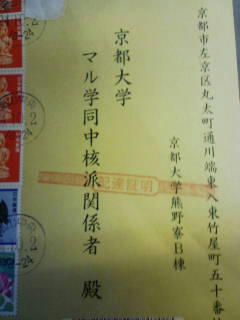 京都市左京区丸太町通川端東入東竹屋町五十番地
京都大学熊野寮B棟
京都大学
マル学同中核派関係者 殿
配達証明